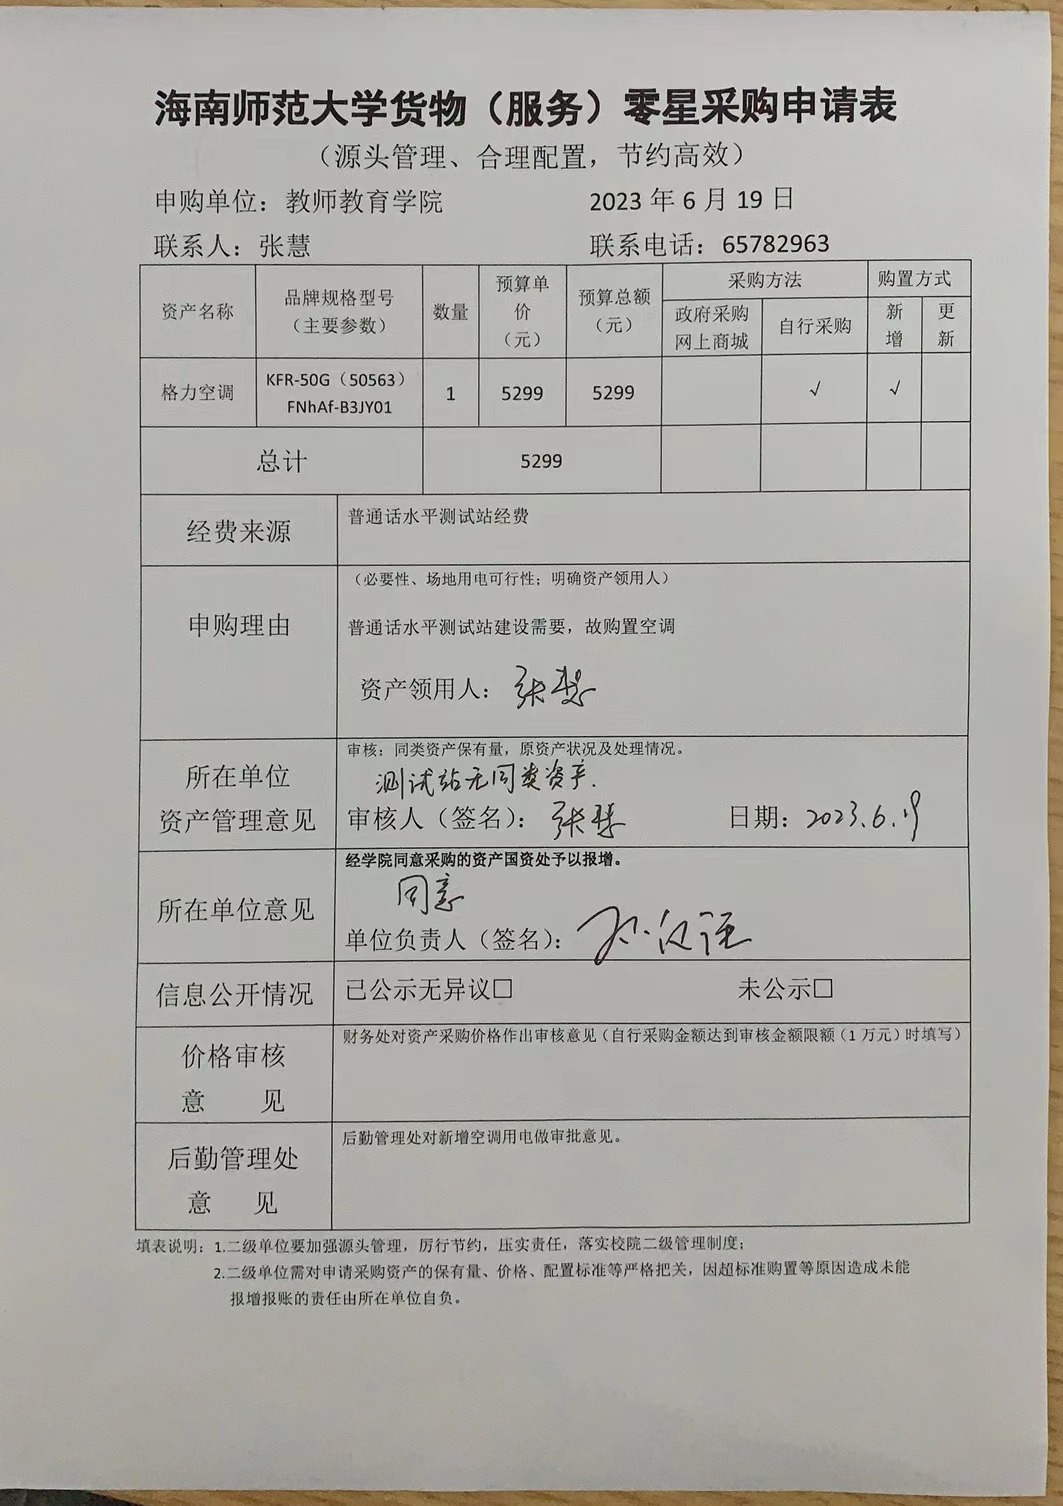 海南师范大学货物（服务）零星采购申请表
（源头管理、合理配置，节约高效）
申购单位：教师教育学院 2023 年 6 月 19 日
联系人：张慧 联系电话：65782963
资产名称 品牌规格型号（主要参数） 数量 预算单价（元） 预算总额（元） 采购方法 购置方式
政府采购网上商城 自行采购 新增 更新
格力空调 KFR-50G（50563）FNhAf-B3JY01 1 5299 5299 √ √
总计 5299
经费来源 普通话水平测试站经费
（必要性、场地用电可行性；明确资产领用人）
申购理由 普通话水平测试站建设需要，故购置空调
资产领用人：张慧
审核：同类资产保有量，原资产状况及处理情况。
所在单位 测试站无同类资产.
资产管理意见 审核人（签名）：张慧 日期：2023.6.19
经学院同意采购的资产国资处予以报增。
同意
所在单位意见 单位负责人（签名）：
信息公开情况 已公示无异议□ 未公示□
财务处对资产采购价格作出审核意见（自行采购金额达到审核金额限额（1 万元）时填写）
价格审核
意 见
后勤管理处对新增空调用电做审批意见。
后勤管理处
意 见
填表说明：1.二级单位要加强源头管理，厉行节约，压实责任，落实校院二级管理制度；
2.二级单位需对申请采购资产的保有量、价格、配置标准等严格把关，因超标准购置等原因造成未能
报增报账的责任由所在单位自负。